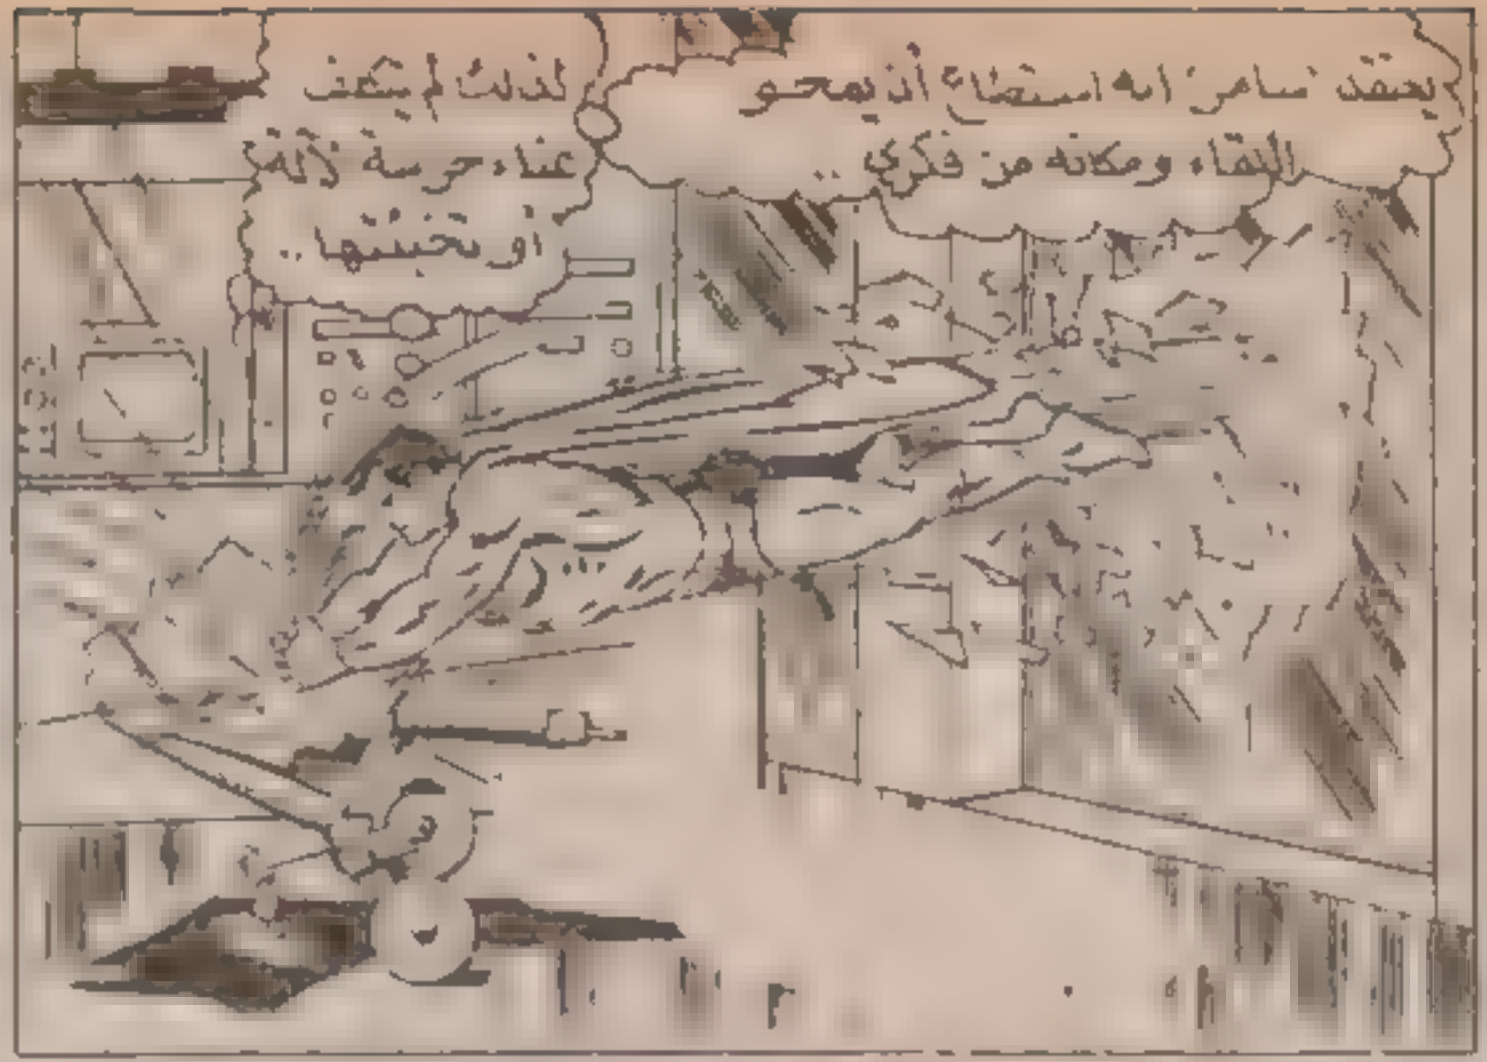 يعتقد سامر انه استطاع أن يمحو
اللقاء ومكانه من فكري ..
لذلك لم يتكلف
عناء حراسة لآلة
او تخبئتها ..